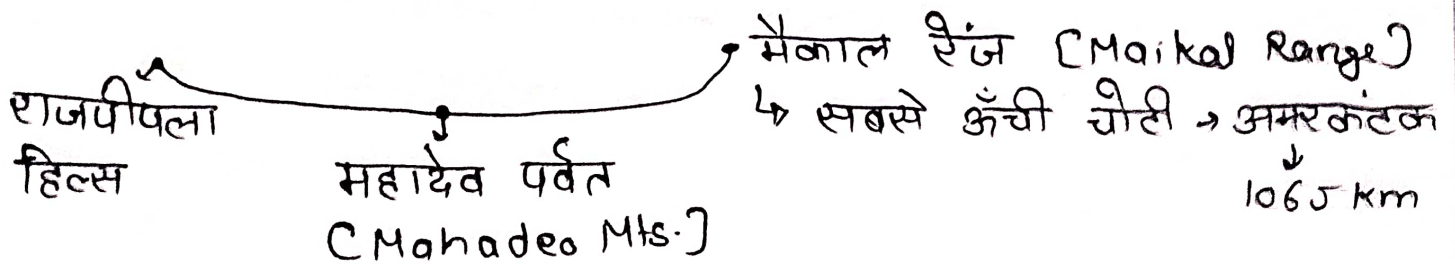 राजपीपला
हिल्स
महादेव पर्वत
(Mahadeo Mts.)
मैकाल रेंज (Maikal Range)
↳ सबसे ऊँची चोटी → अमरकंटक
↓
1065 km